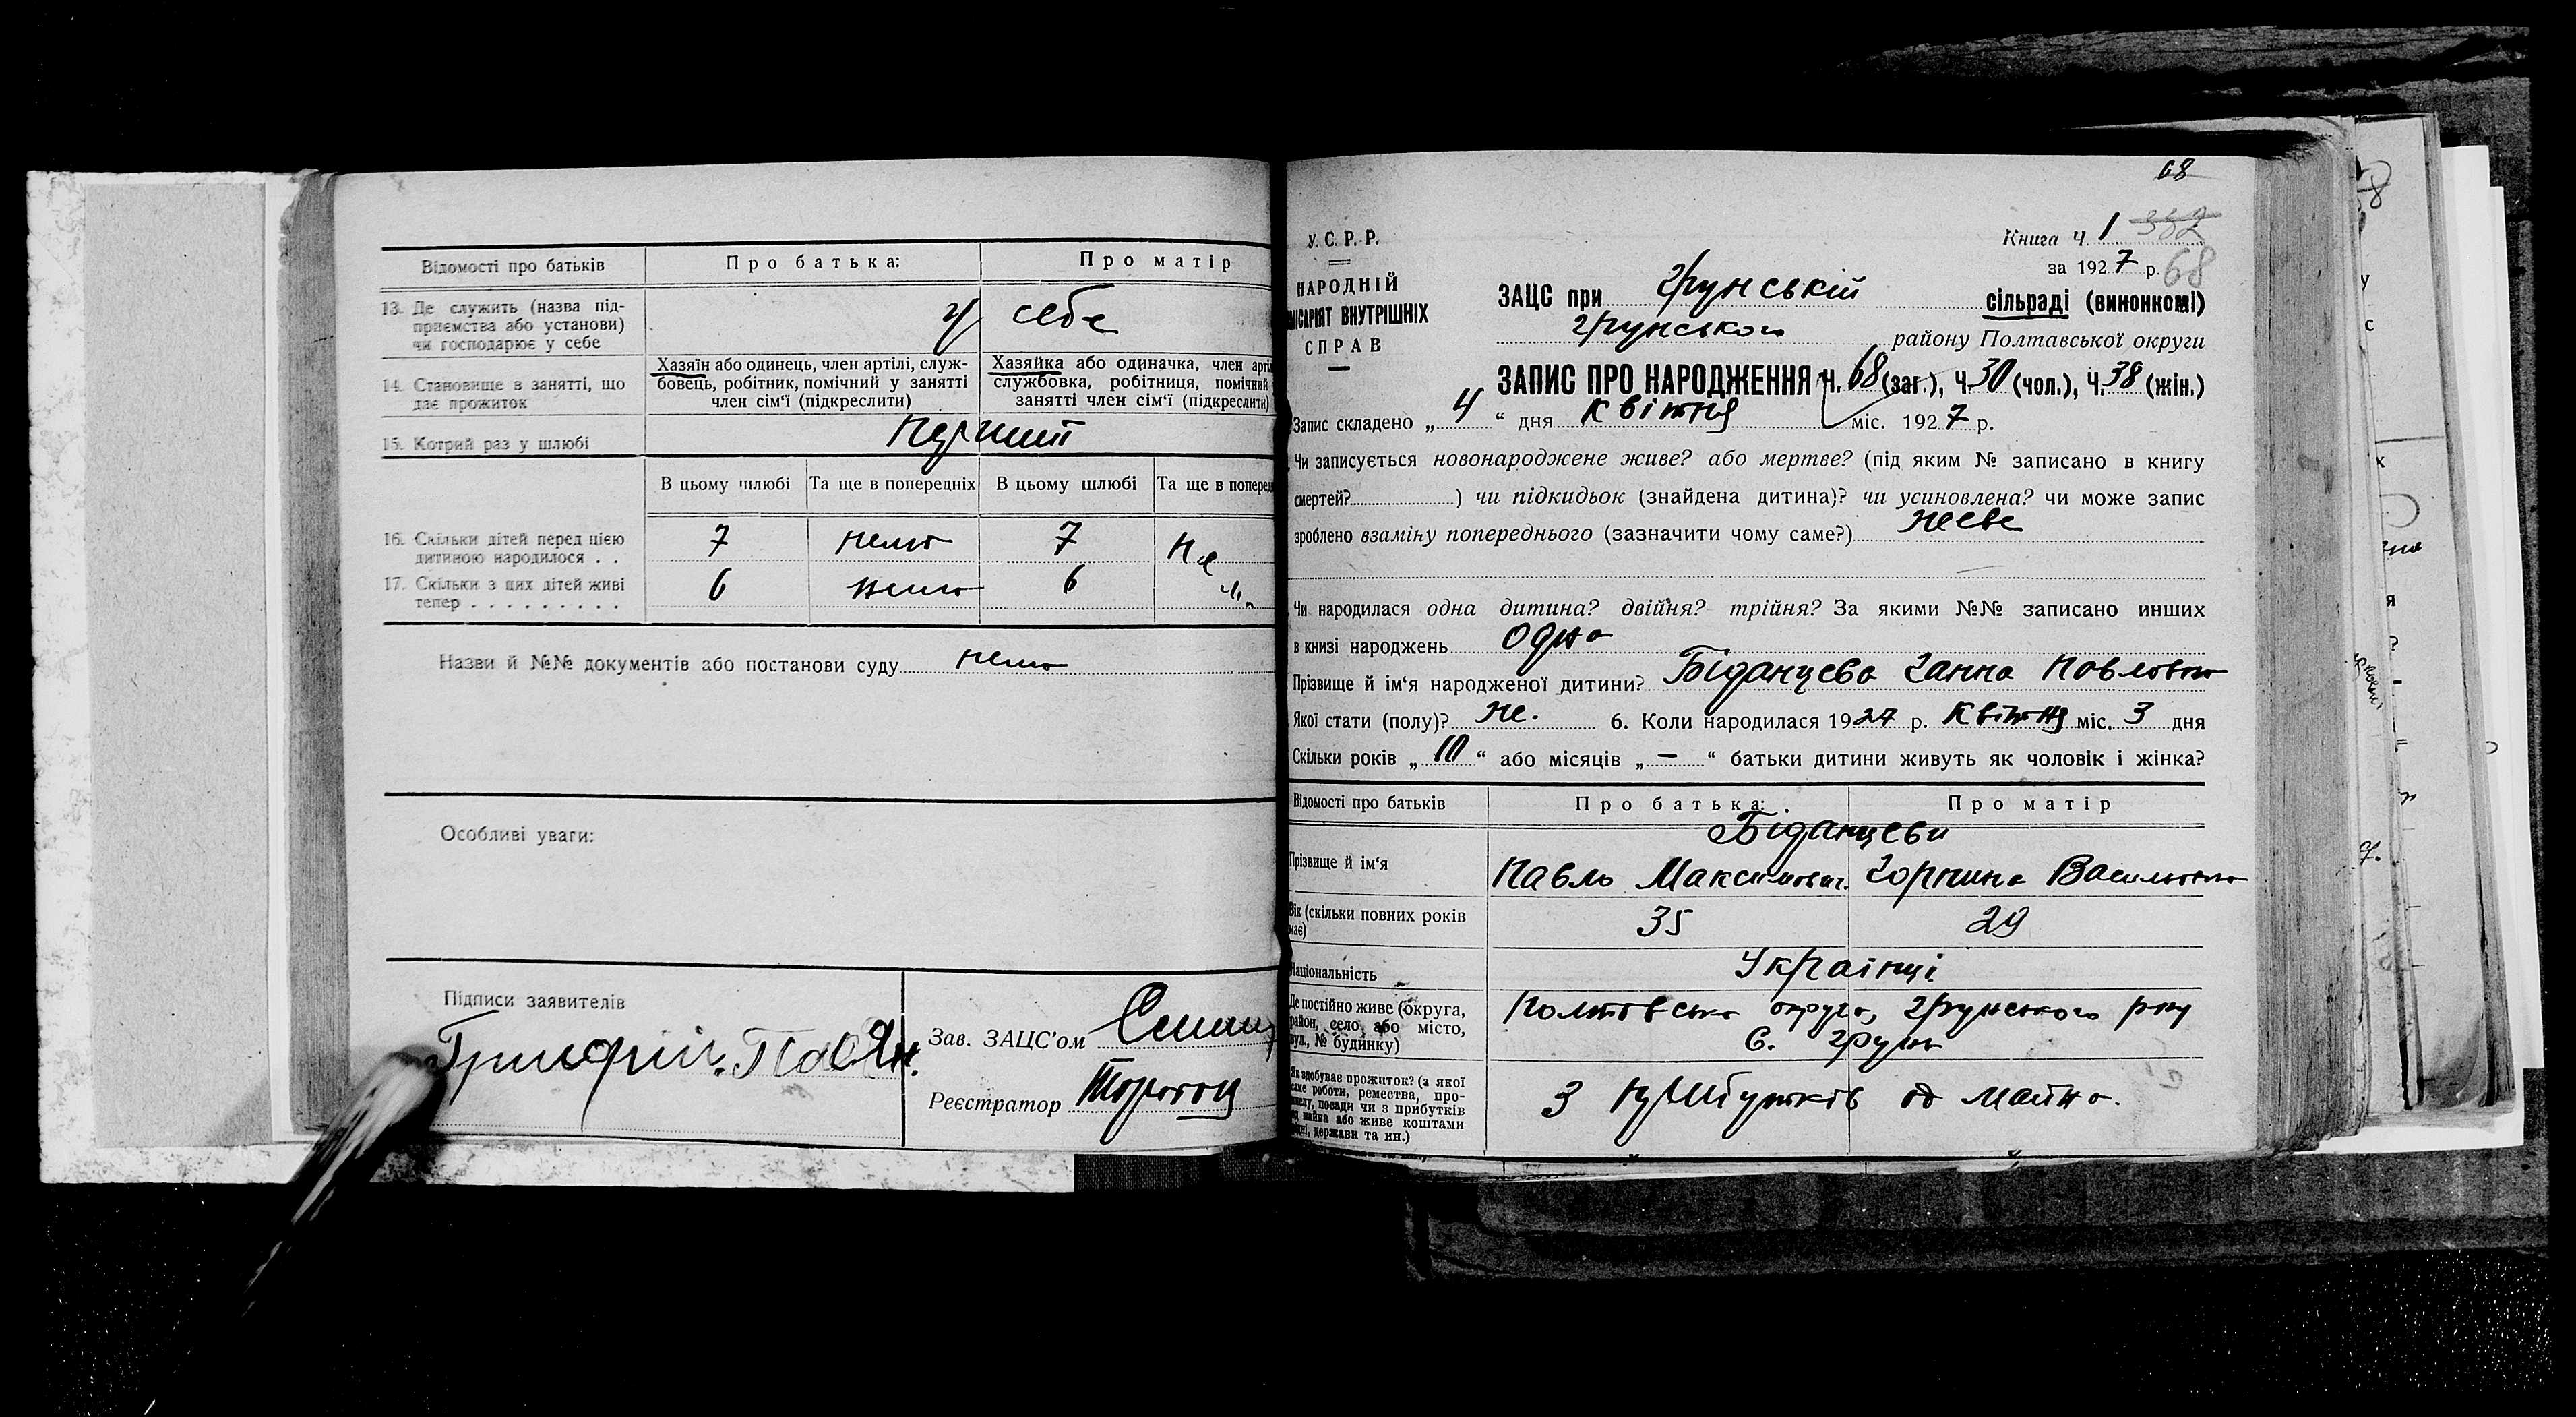 Відомості про батьків
Про батька:
Про матір
13. Де служить (назва підприємства або установи) чи господарює у себе
у себе
14. Становище в занятті, що дає прожиток
Хазяїн або одинець, член артілі, служ-
бовець, робітник, помічний у занятті
член сім'ї (підкреслити)
Хазяйка або одиначка, член арті
службовка, робітниця, помічний
занятті член сім'ї (підкреслити)
15. Котрий раз у шлюбі
В цьому шлюбі
Та ще в попередніх
В цьому шлюбі
Та ще в поперед
16. Скільки дітей перед цією
дитиною народилося . .
7 нема 7 не
17. Скільки з цих дітей живі
тепер . . . . . . . . .
6 нема 6 „
Назви й №№ документів або постанови суду нема
Особливі уваги:
Підписи заявителів
Зав. ЗАЦС'ом
Реєстратор
68
У. С. Р. Р.
НАРОДНІЙ
МІСАРІЯТ ВНУТРІШНІХ
СПРАВ
Книга Ч. 1 382
за 1927 р. 68
ЗАЦС при Грунській сільраді (виконкомі)
Грунського району Полтавської округи
ЗАПИС ПРО НАРОДЖЕННЯ Ч. 68 (заг.), Ч. 30 (чол.), Ч. 38 (жін.)
Запис складено „ 4 “ дня квітня міс. 1927 р.
Чи записується новонароджене живе? або мертве? (під яким № записано в книгу
смертей? ) чи підкидьок (знайдена дитина)? чи усиновлена? чи може запис
зроблено взаміну попереднього (зазначити чому саме?) живе
Чи народилася одна дитина? двійня? трійня? За якими №№ записано инших
в книзі народжень одна
Прізвище й ім'я народженої дитини? Біданцева Ганна Павловна
Якої стати (полу)? ж. 6. Коли народилася 1927 р. Квітня міс. 3 дня
Скільки років „ 10 “ або місяців „ — “ батьки дитини живуть як чоловік і жінка?
Відомості про батьків
Про батька:
Про матір
Біданцеви
Прізвище й ім'я
Павло Максимович. Горпина Васильовна
Вік (скільки повних років
має)
35 29
Національність
Українці
Де постійно живе (округа,
район, село або місто,
вул., № будинку)
Полтавська округа, Грунського р-ну
С. Грунь
Як здобуває прожиток? (з якої
саме роботи, ремества, про-
мислу, посади чи з прибутків
од майна або живе коштами
рідні, держави та ин.)
З прибутків од майна.